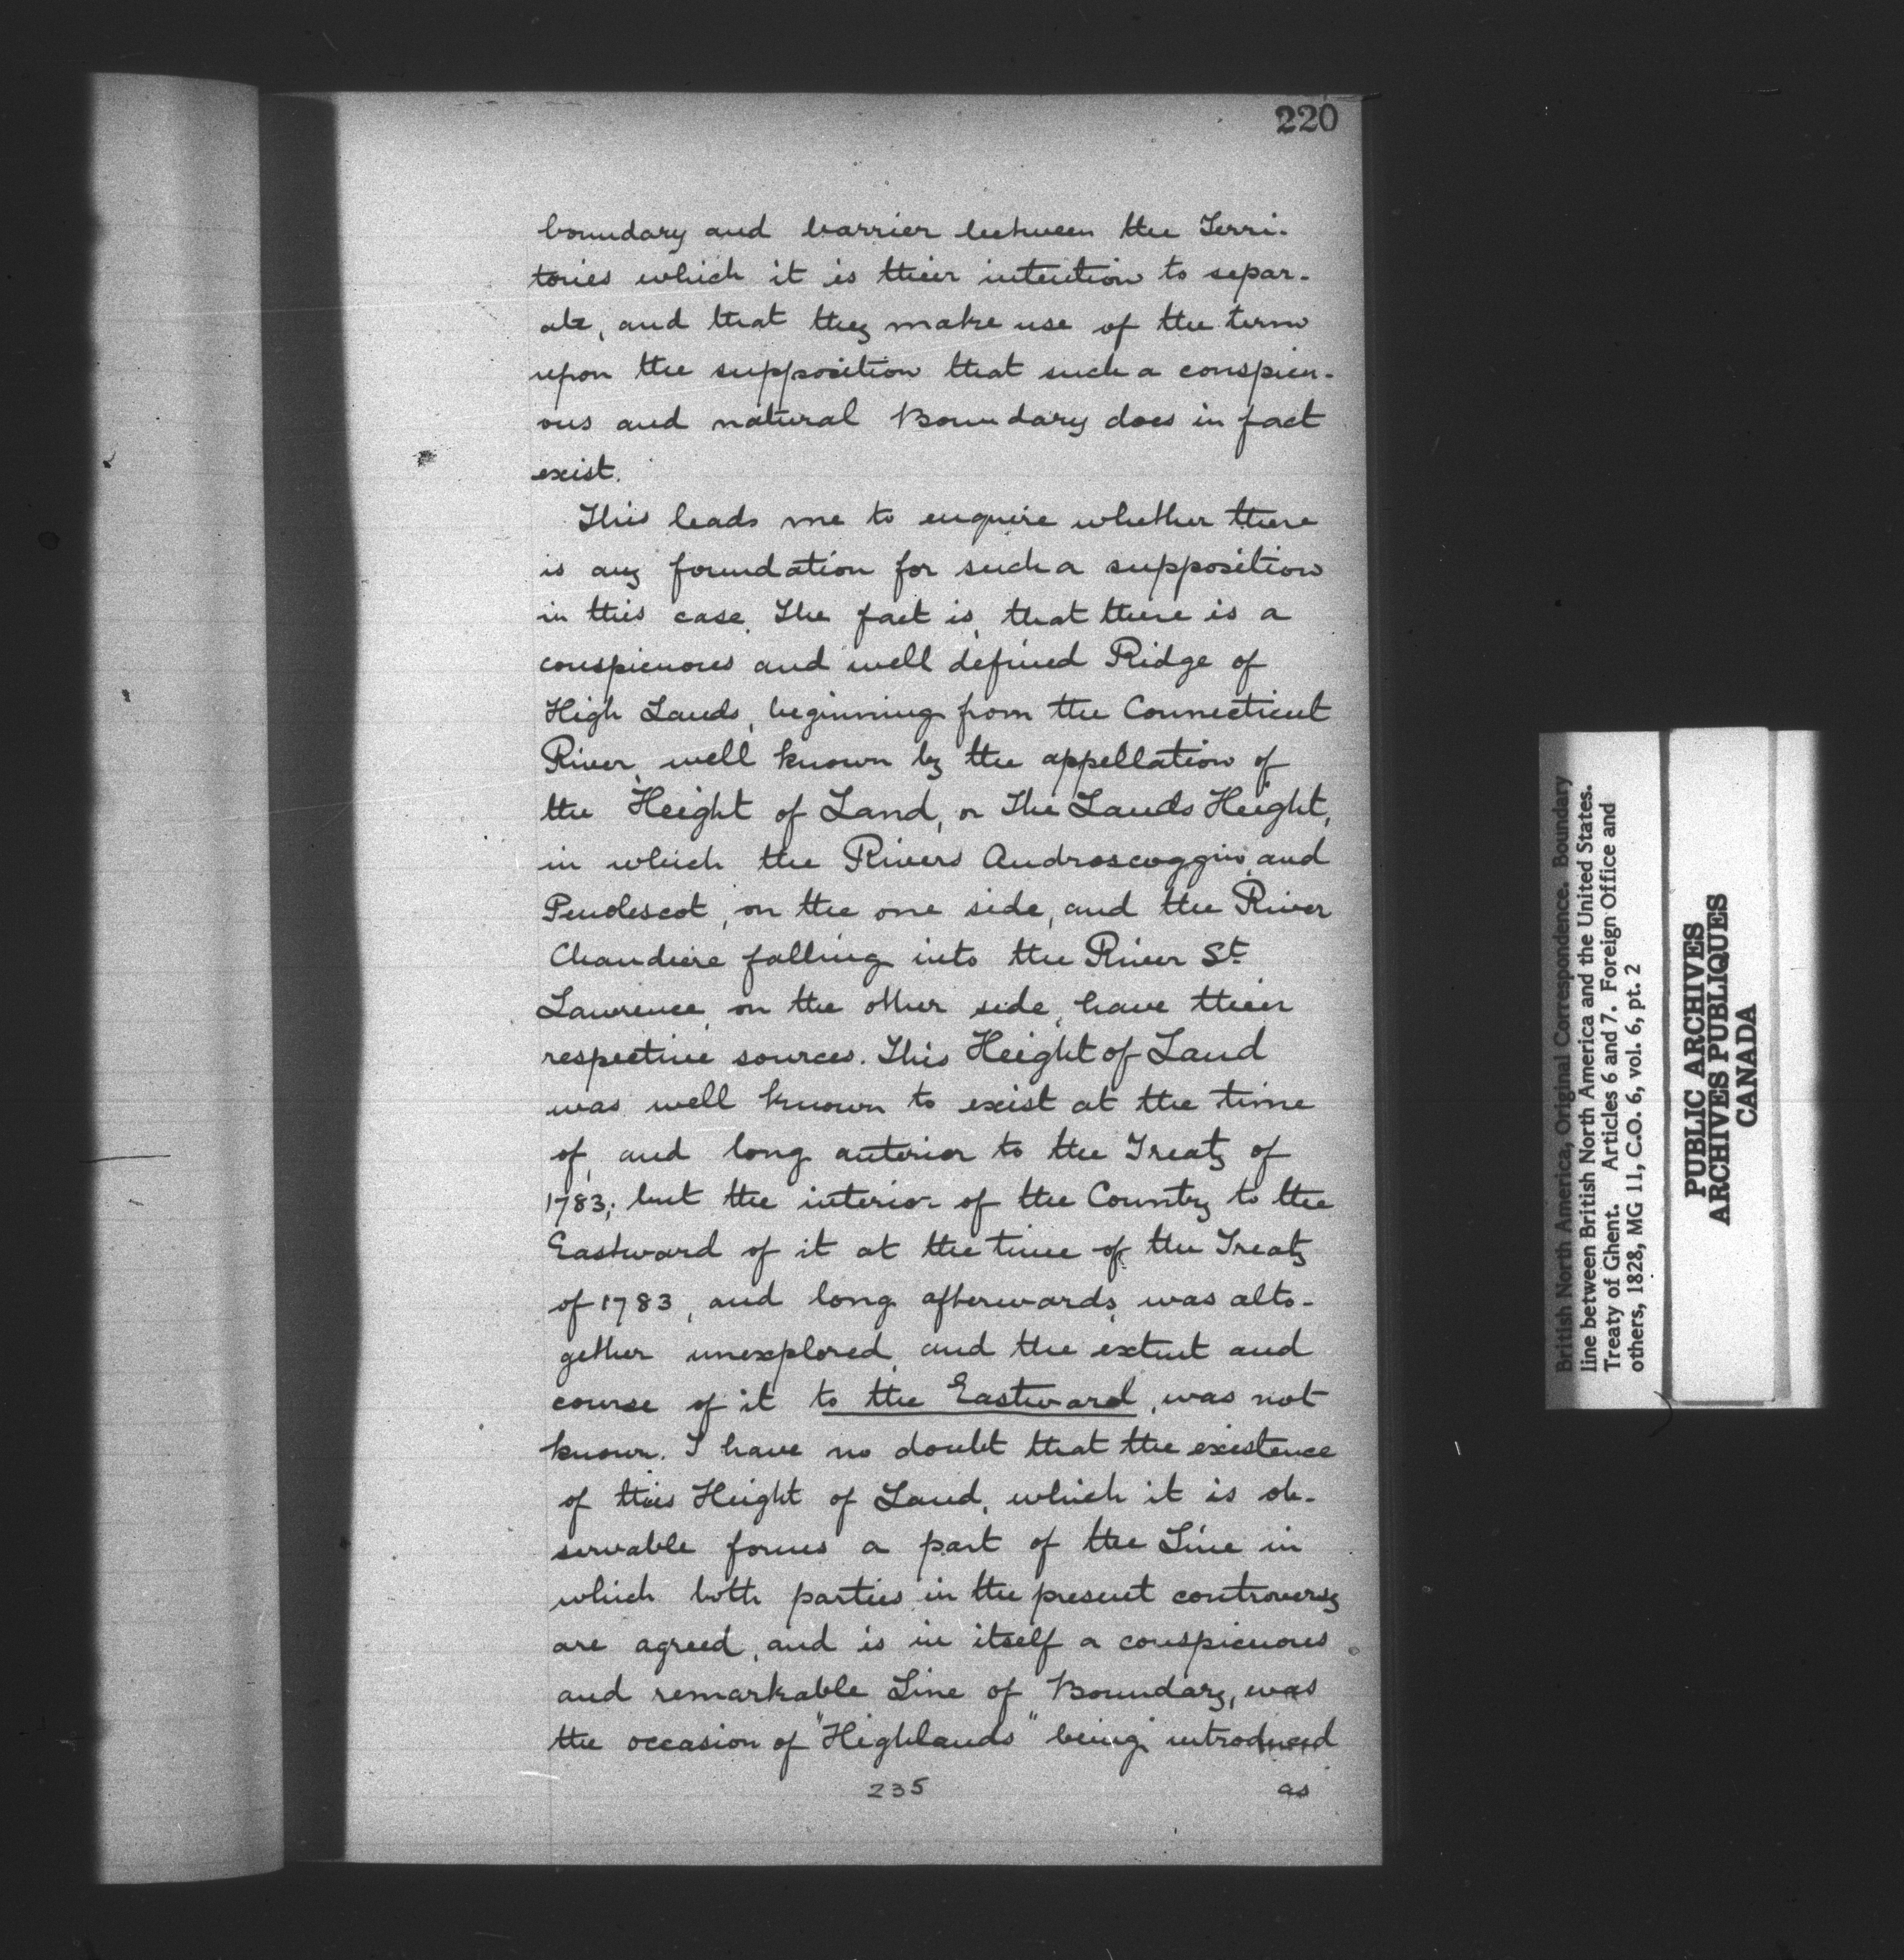 220
boundary and barrier between the Terri-
tories which it is their intention to separ-
ate, and that they make use of the term
upon the supposition that such a conspicu-
ous and natural Boundary does in fact
exist.
This leads me to enquire whether there
is any foundation for such a supposition
in this case. The fact is, that there is a
conspicuous and well defined Ridge of
High Lands, beginning from the Connecticut
River, well known by the appellation of
the Height of Land, or The Lands Height,
in which the Rivers Androscoggin, and
Penobscot, on the one side, and the River
Chaudiere falling into the River St.
Lawrence, on the other side, have their
respective sources. This Height of Land
was well known to exist at the time
of, and long anterior to the Treaty of
1783; but the interior of the Country to the
Eastward of it at the time of the Treaty
of 1783, and long afterwards, was alto-
gether unexplored, and the extent and
course of it to the Eastward, was not
known. I have no doubt that the existence
of this Height of Land, which it is ob-
servable forms a part of the Line in
which both parties in the present controversy
are agreed, and is in itself a conspicuous
and remarkable Line of Boundary, was
the occasion of "Highlands" being introduced
235
as
British North America, Original Correspondence. Boundary
line between British North America and the United States.
Treaty of Ghent. Articles 6 and 7. Foreign Office and
others, 1828, MG 11, C.O. 6, vol. 6, pt. 2
PUBLIC ARCHIVES
ARCHIVES PUBLIQUES
CANADA